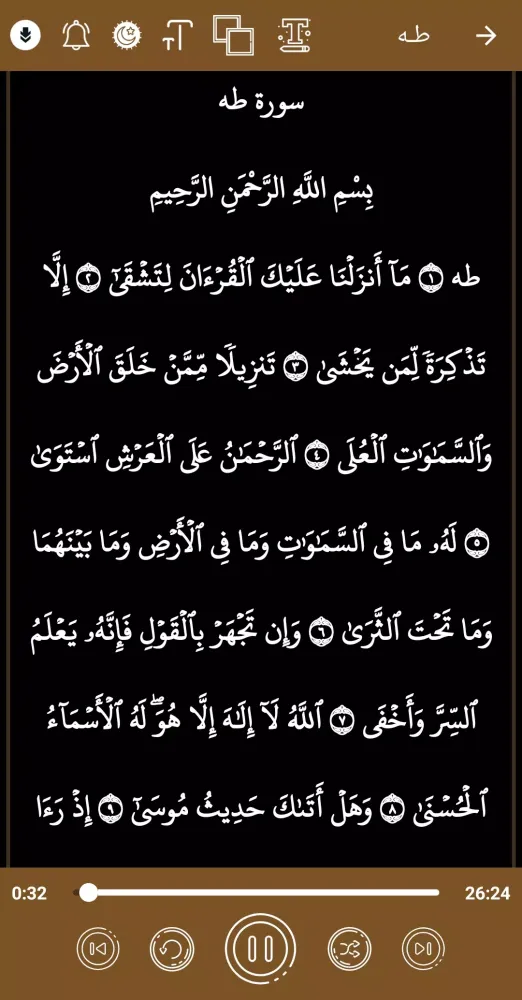 طه
سورة طه
بِسْمِ اللَّهِ الرَّحْمَنِ الرَّحِيمِ
طه ۝١ مَآ أَنزَلْنَا عَلَيْكَ ٱلْقُرْءَانَ لِتَشْقَىٰٓ ۝٢ إِلَّا
تَذْكِرَةً لِّمَن يَخْشَىٰ ۝٣ تَنزِيلًا مِّمَّنْ خَلَقَ ٱلْأَرْضَ
وَٱلسَّمَٰوَٰتِ ٱلْعُلَى ۝٤ ٱلرَّحْمَٰنُ عَلَى ٱلْعَرْشِ ٱسْتَوَىٰ
۝٥ لَهُۥ مَا فِى ٱلسَّمَٰوَٰتِ وَمَا فِى ٱلْأَرْضِ وَمَا بَيْنَهُمَا
وَمَا تَحْتَ ٱلثَّرَىٰ ۝٦ وَإِن تَجْهَرْ بِٱلْقَوْلِ فَإِنَّهُۥ يَعْلَمُ
ٱلسِّرَّ وَأَخْفَى ۝٧ ٱللَّهُ لَآ إِلَٰهَ إِلَّا هُوَ ۖ لَهُ ٱلْأَسْمَآءُ
ٱلْحُسْنَىٰ ۝٨ وَهَلْ أَتَىٰكَ حَدِيثُ مُوسَىٰٓ ۝٩ إِذْ رَءَا
0:32 26:24